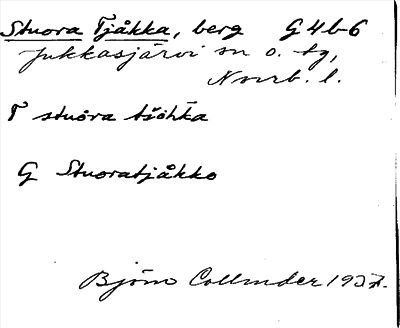 Stuora Tjåkka, berg G4b-6
Jukkasjärvi sn o. tg,
Norrb. l.
T stuōra tšöhka
G Stuoratjåkko
Björn Collinder 193